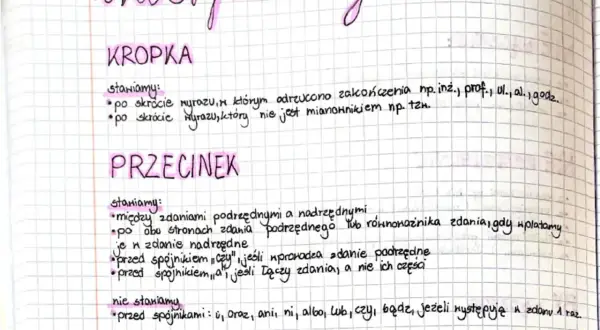 KROPKA
stawiamy:
•po skrócie wyrazu, w którym odrzucono zakończenia np. inż., prof., ul., al., godz.
•po skrócie wyrazu, który nie jest mianownikiem np. tzw.
PRZECINEK
stawiamy:
•między zdaniami podrzędnymi a nadrzędnymi
•po obu stronach zdania podrzędnego lub równoważnika zdania, gdy wplatamy
je w zdanie nadrzędne
•przed spójnikiem „czy”, jeśli wprowadza zdanie podrzędne
•przed spójnikiem „a”, jeśli łączy zdania, a nie ich części
nie stawiamy
•przed spójnikami: i, oraz, ani, ni, albo, lub, czy, bądź, jeżeli występują w zdaniu 1 raz.